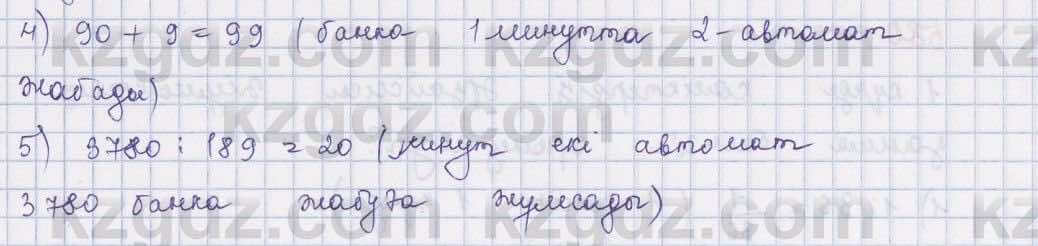 4) 90 + 9 = 99 (банка 1 минутта 2-автомат
жабады)
5) 3780 : 189 = 20 (минут екі автомат
3780 банка жабуға жұмсады)